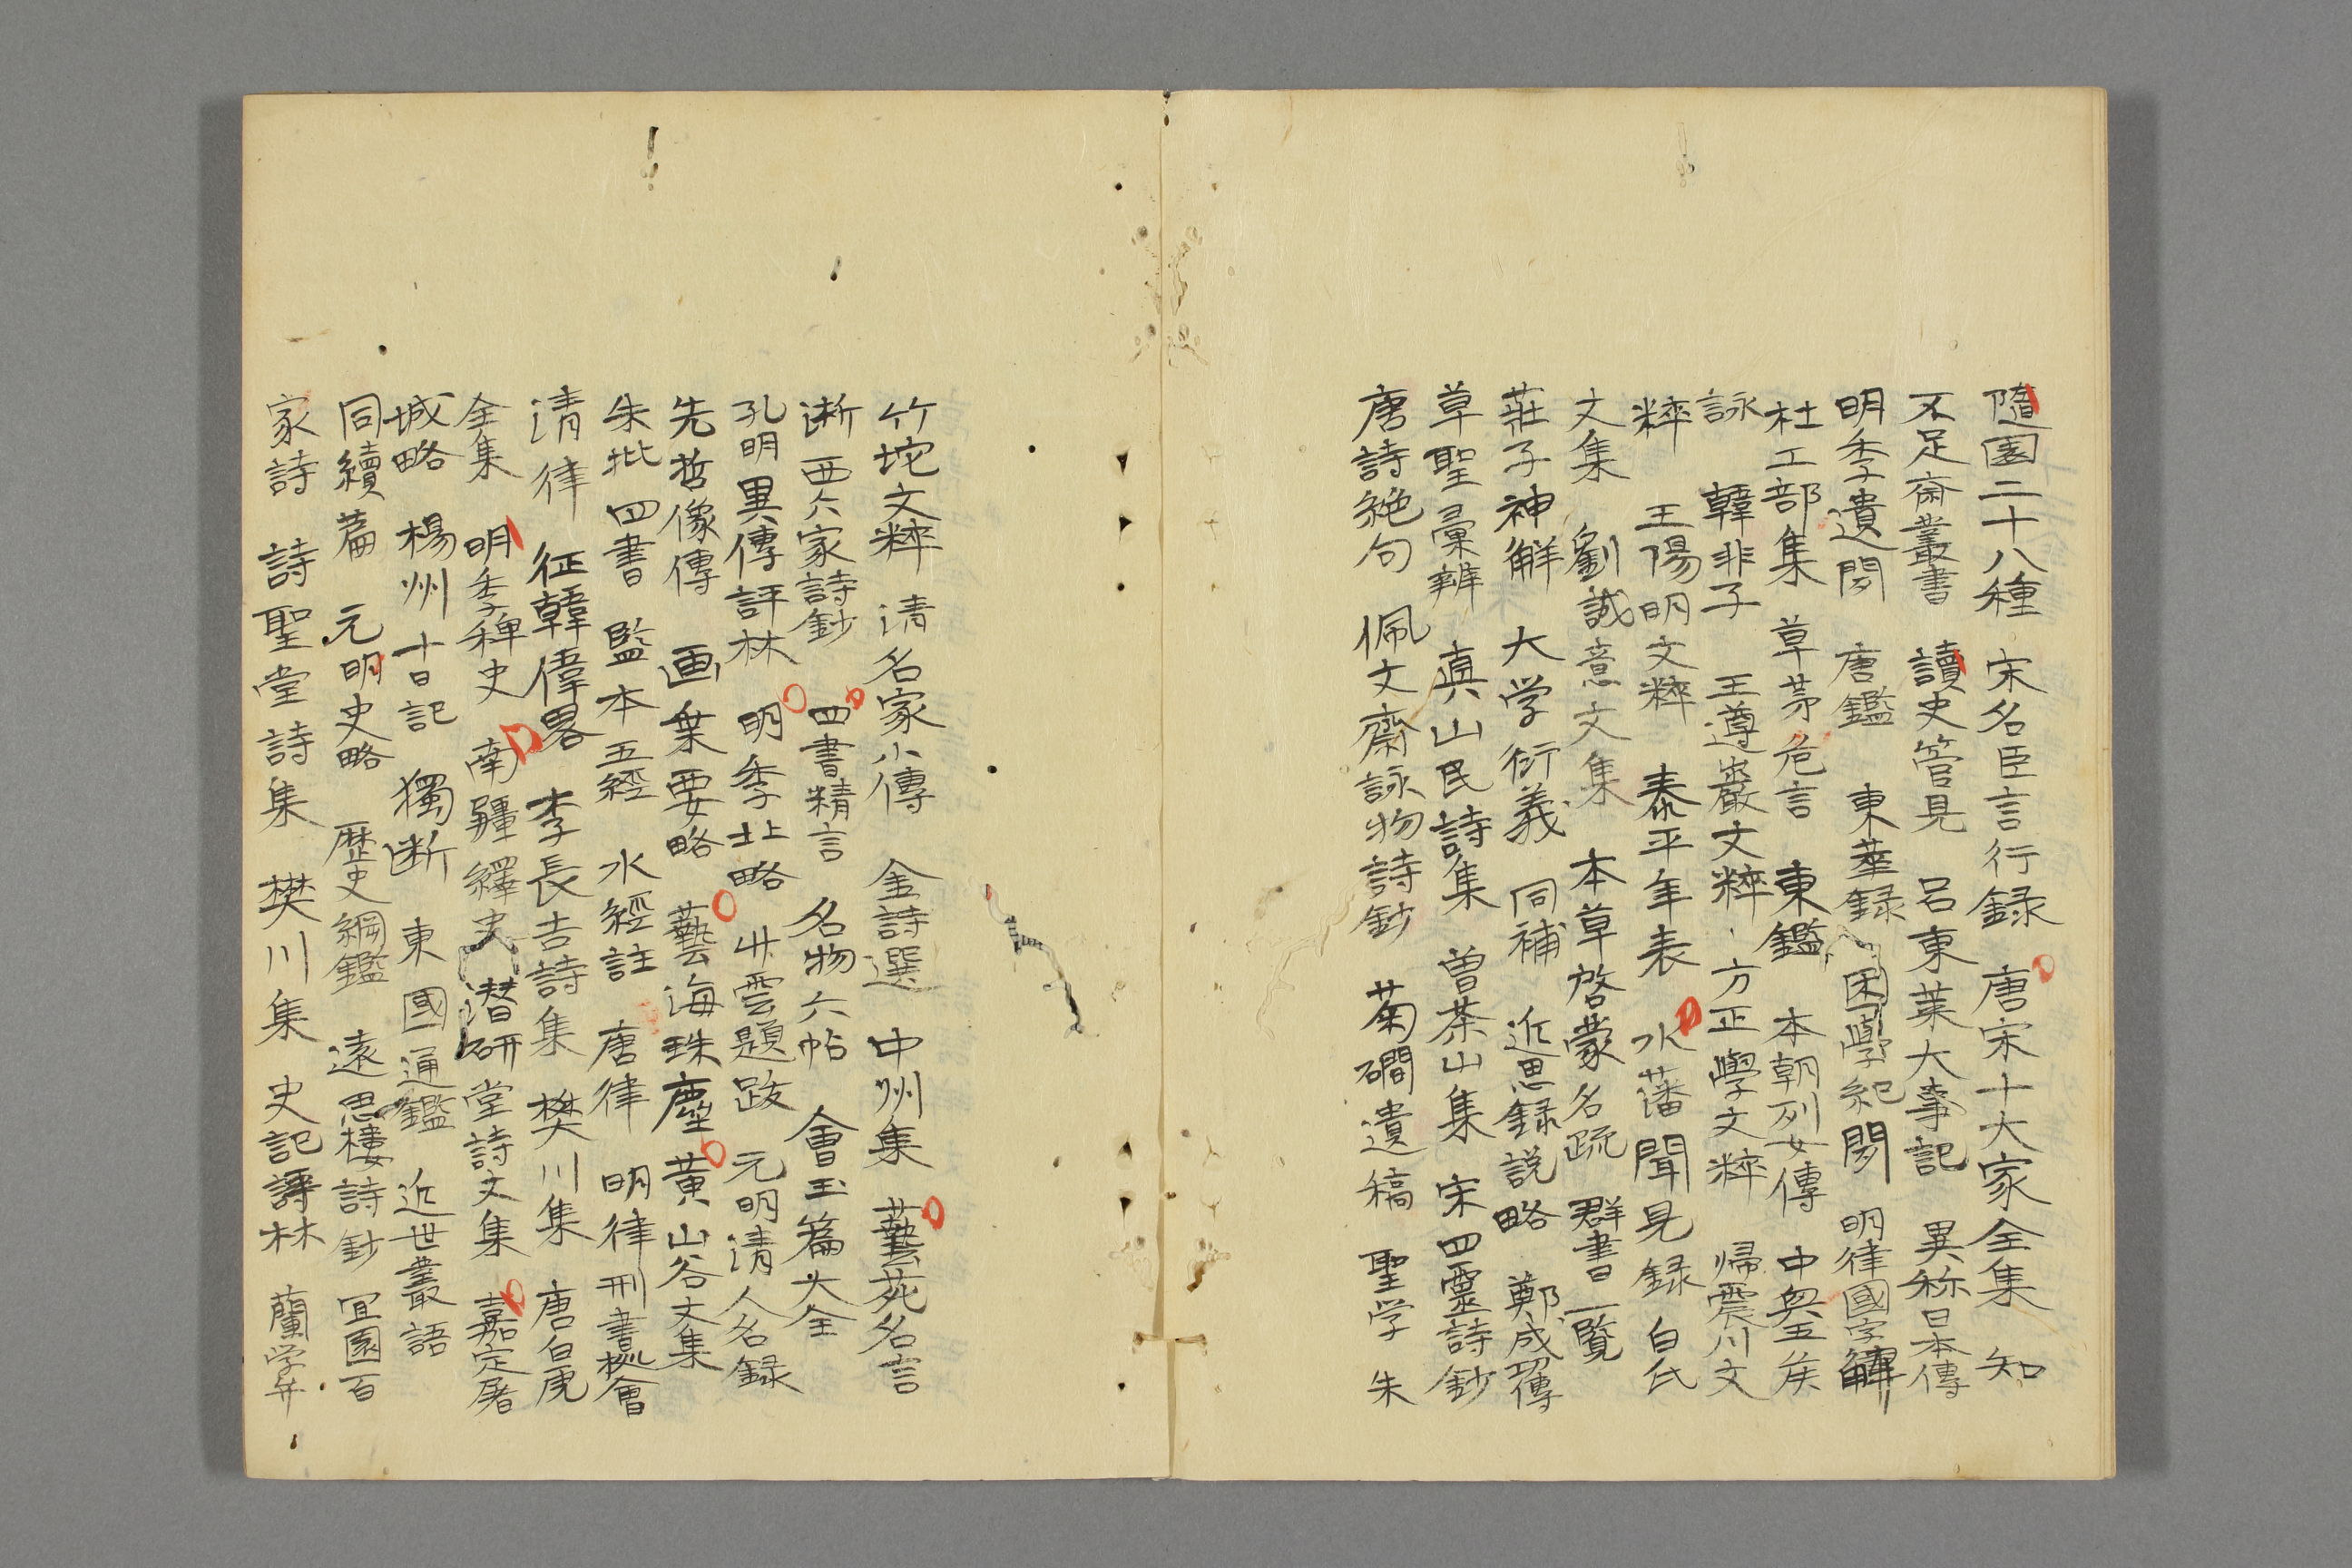 隨園二十八種 宋名臣言行録 唐宋十大家全集 知
不足齋叢書 讀史管見 呂東萊大事記 異称日本傳
明季遺聞 唐鑑 東華録 困學紀聞 明律國字解
杜工部集 草茅危言 東鑑 本朝列女傳 中興五侯
詠 韓非子 王遵巖文粹 方正學文粹 帰震川文
粹 王陽明文粹 泰平年表 水藩聞見録 白氏
文集 劉誠意文集 本草啓蒙名疏 群書一覧
莊子神解 大学衍義 同補 近思録説略 鄭成功傳
草聖彙辨 真山民詩集 曽茶山集 宋四靈詩鈔
唐詩絶句 佩文齋詠物詩鈔 菊磵遺稿 聖学 朱
竹坨文粹 清名家小傳 金詩選 中州集 藝苑名言
断 西六家詩鈔 四書精言 名物六帖 會玉篇大全
孔明異傳評林 明季北略 廿雲題跋 元明清人名録
先哲像傳 画乗要略 藝海珠塵 黄山谷文集
朱批四書 監本五經 水經註 唐律 明律刑書㨿會
清律 征韓偉畧 李長吉詩集 樊川集 唐白虎
全集 明季稗史 南疆繹史 潜研堂詩文集 嘉定屠
城略 楊州十日記 獨断 東國通鑑 近世叢語
同續篇 元明史略 歴史綱鑑 遠思楼詩鈔 宜園百
家詩 詩聖堂詩集 樊川集 史記評林 蘭学弁